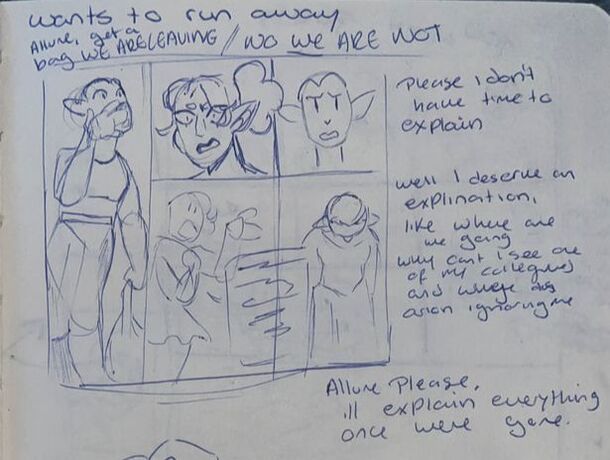 wants to run away
Allure, get a
bag WE ARE LEAVING / NO WE ARE NOT
Please I don't
have time to
explain
well I deserve an
explination,
like where are
we going
why cant I see one
of my collegues
and whers
arion ignoring me
Allure Please,
ill explain everything
once were gone.